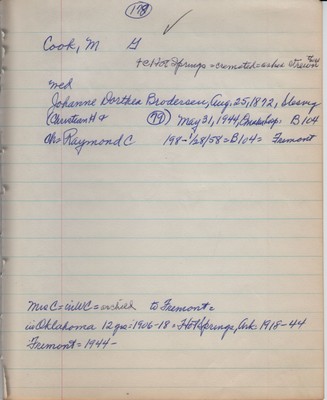 178
Cook, M G
+ c Hot Springs = cremated = ashes strewn
wed
Johanne Dorthea Brodersen, Aug. 25, 1872, Slesvig
(Christian H &
79) May 31, 1944, B104
ch = Raymond C 198 - 1/28/58 = B104 = Fremont
Mrs C = in WC = as child to Fremont =
in Oklahoma 12 yrs: 1906-18 = Hot Springs, Ark 1918-44
Fremont = 1944 -